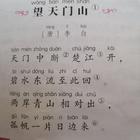 wàng tiān mén shān
望天门山①
táng lǐ bái
[唐] 李白
tiān mén zhōng duàn chǔ jiāng kāi
天门中断楚江开，
bì shuǐ dōng liú zhì cǐ huí
碧水东流至此回
liǎng àn qīng shān xiāng duì chū
两岸青山相对出，
gū fān yí piàn rì biān lái
孤帆一片日边来。